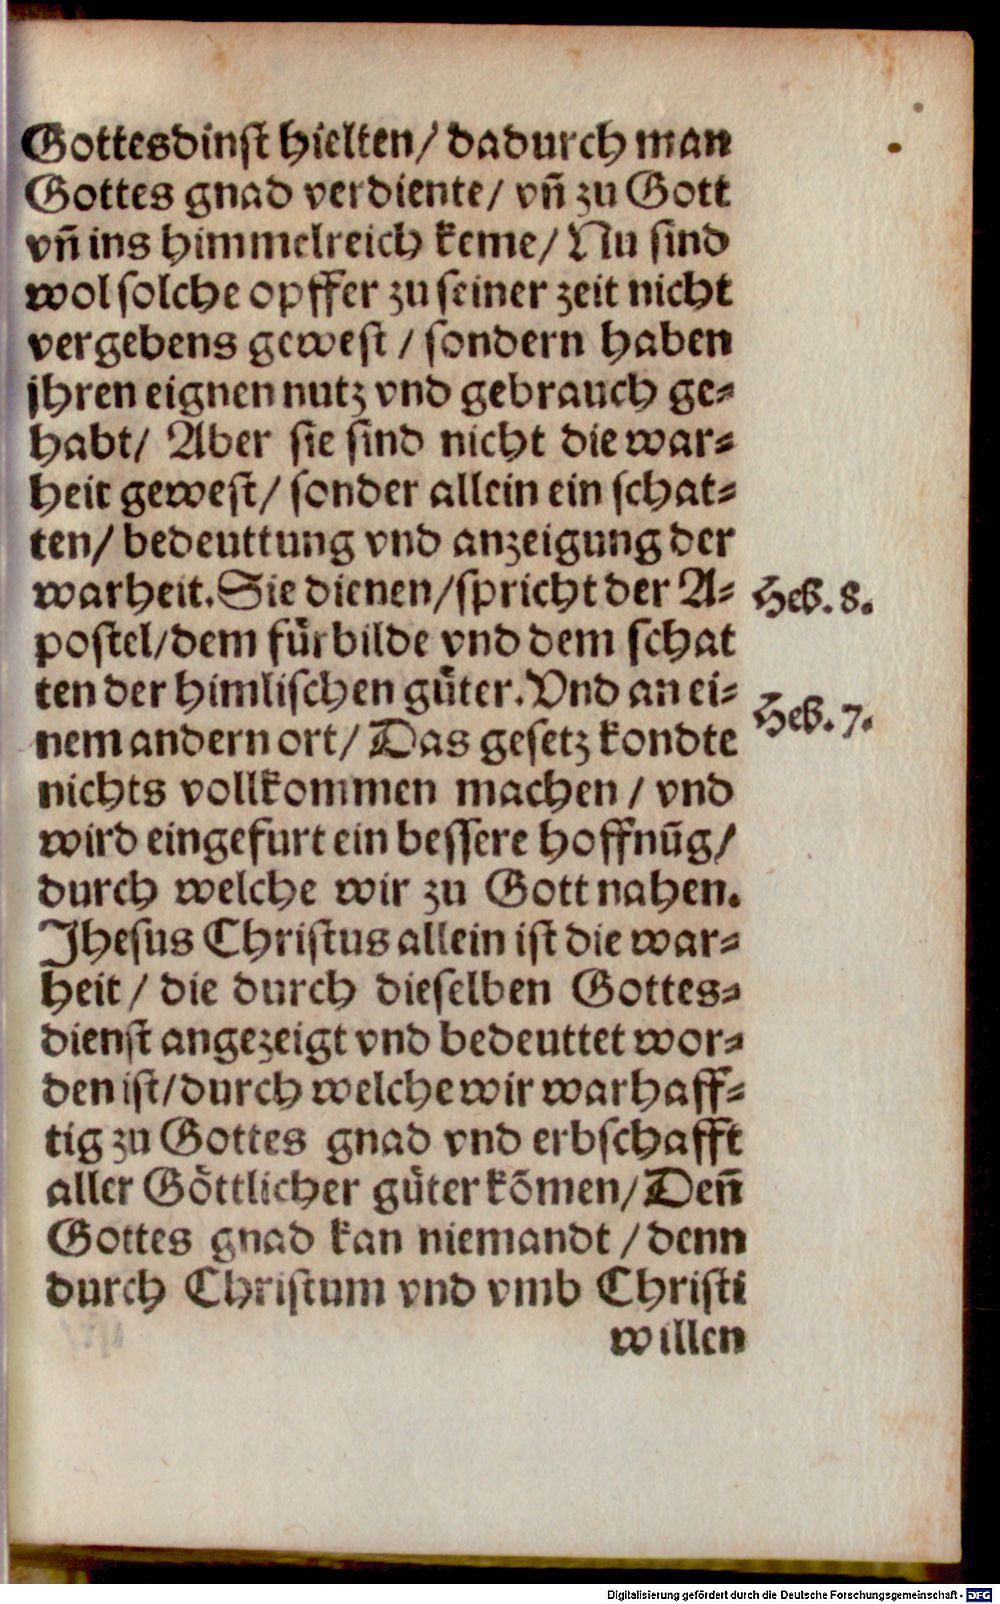 Gottesdinst hielten/ dadurch man
Gottes gnad verdiente/ vñ zu Gott
vñ ins himmelreich keme/ Nu sind
wol solche opffer zu seiner zeit nicht
vergebens gewest / sondern haben
jhren eignen nutz vnd gebrauch ge⸗
habt/ Aber sie sind nicht die war⸗
heit gewest/ sonder allein ein schat⸗
ten/ bedeuttung vnd anzeigung der
warheit. Sie dienen/ spricht der A⸗
Heb. 8.
postel/ dem fürbilde vnd dem schat
ten der himlischen güter. Vnd an ei⸗
Heb. 7.
nem andern ort/ Das gesetz kondte
nichts vollkommen machen / vnd
wird eingefurt ein bessere hoffnũg/
durch welche wir zu Gott nahen.
Jhesus Christus allein ist die war⸗
heit / die durch dieselben Gottes⸗
dienst angezeigt vnd bedeuttet wor⸗
den ist/ durch welche wir warhaff⸗
tig zu Gottes gnad vnd erbschafft
aller Göttlicher güter kõmen/ Deñ
Gottes gnad kan niemandt / denn
durch Christum vnd vmb Christi
willen
Digitalisierung gefördert durch die Deutsche Forschungsgemeinschaft - DFG